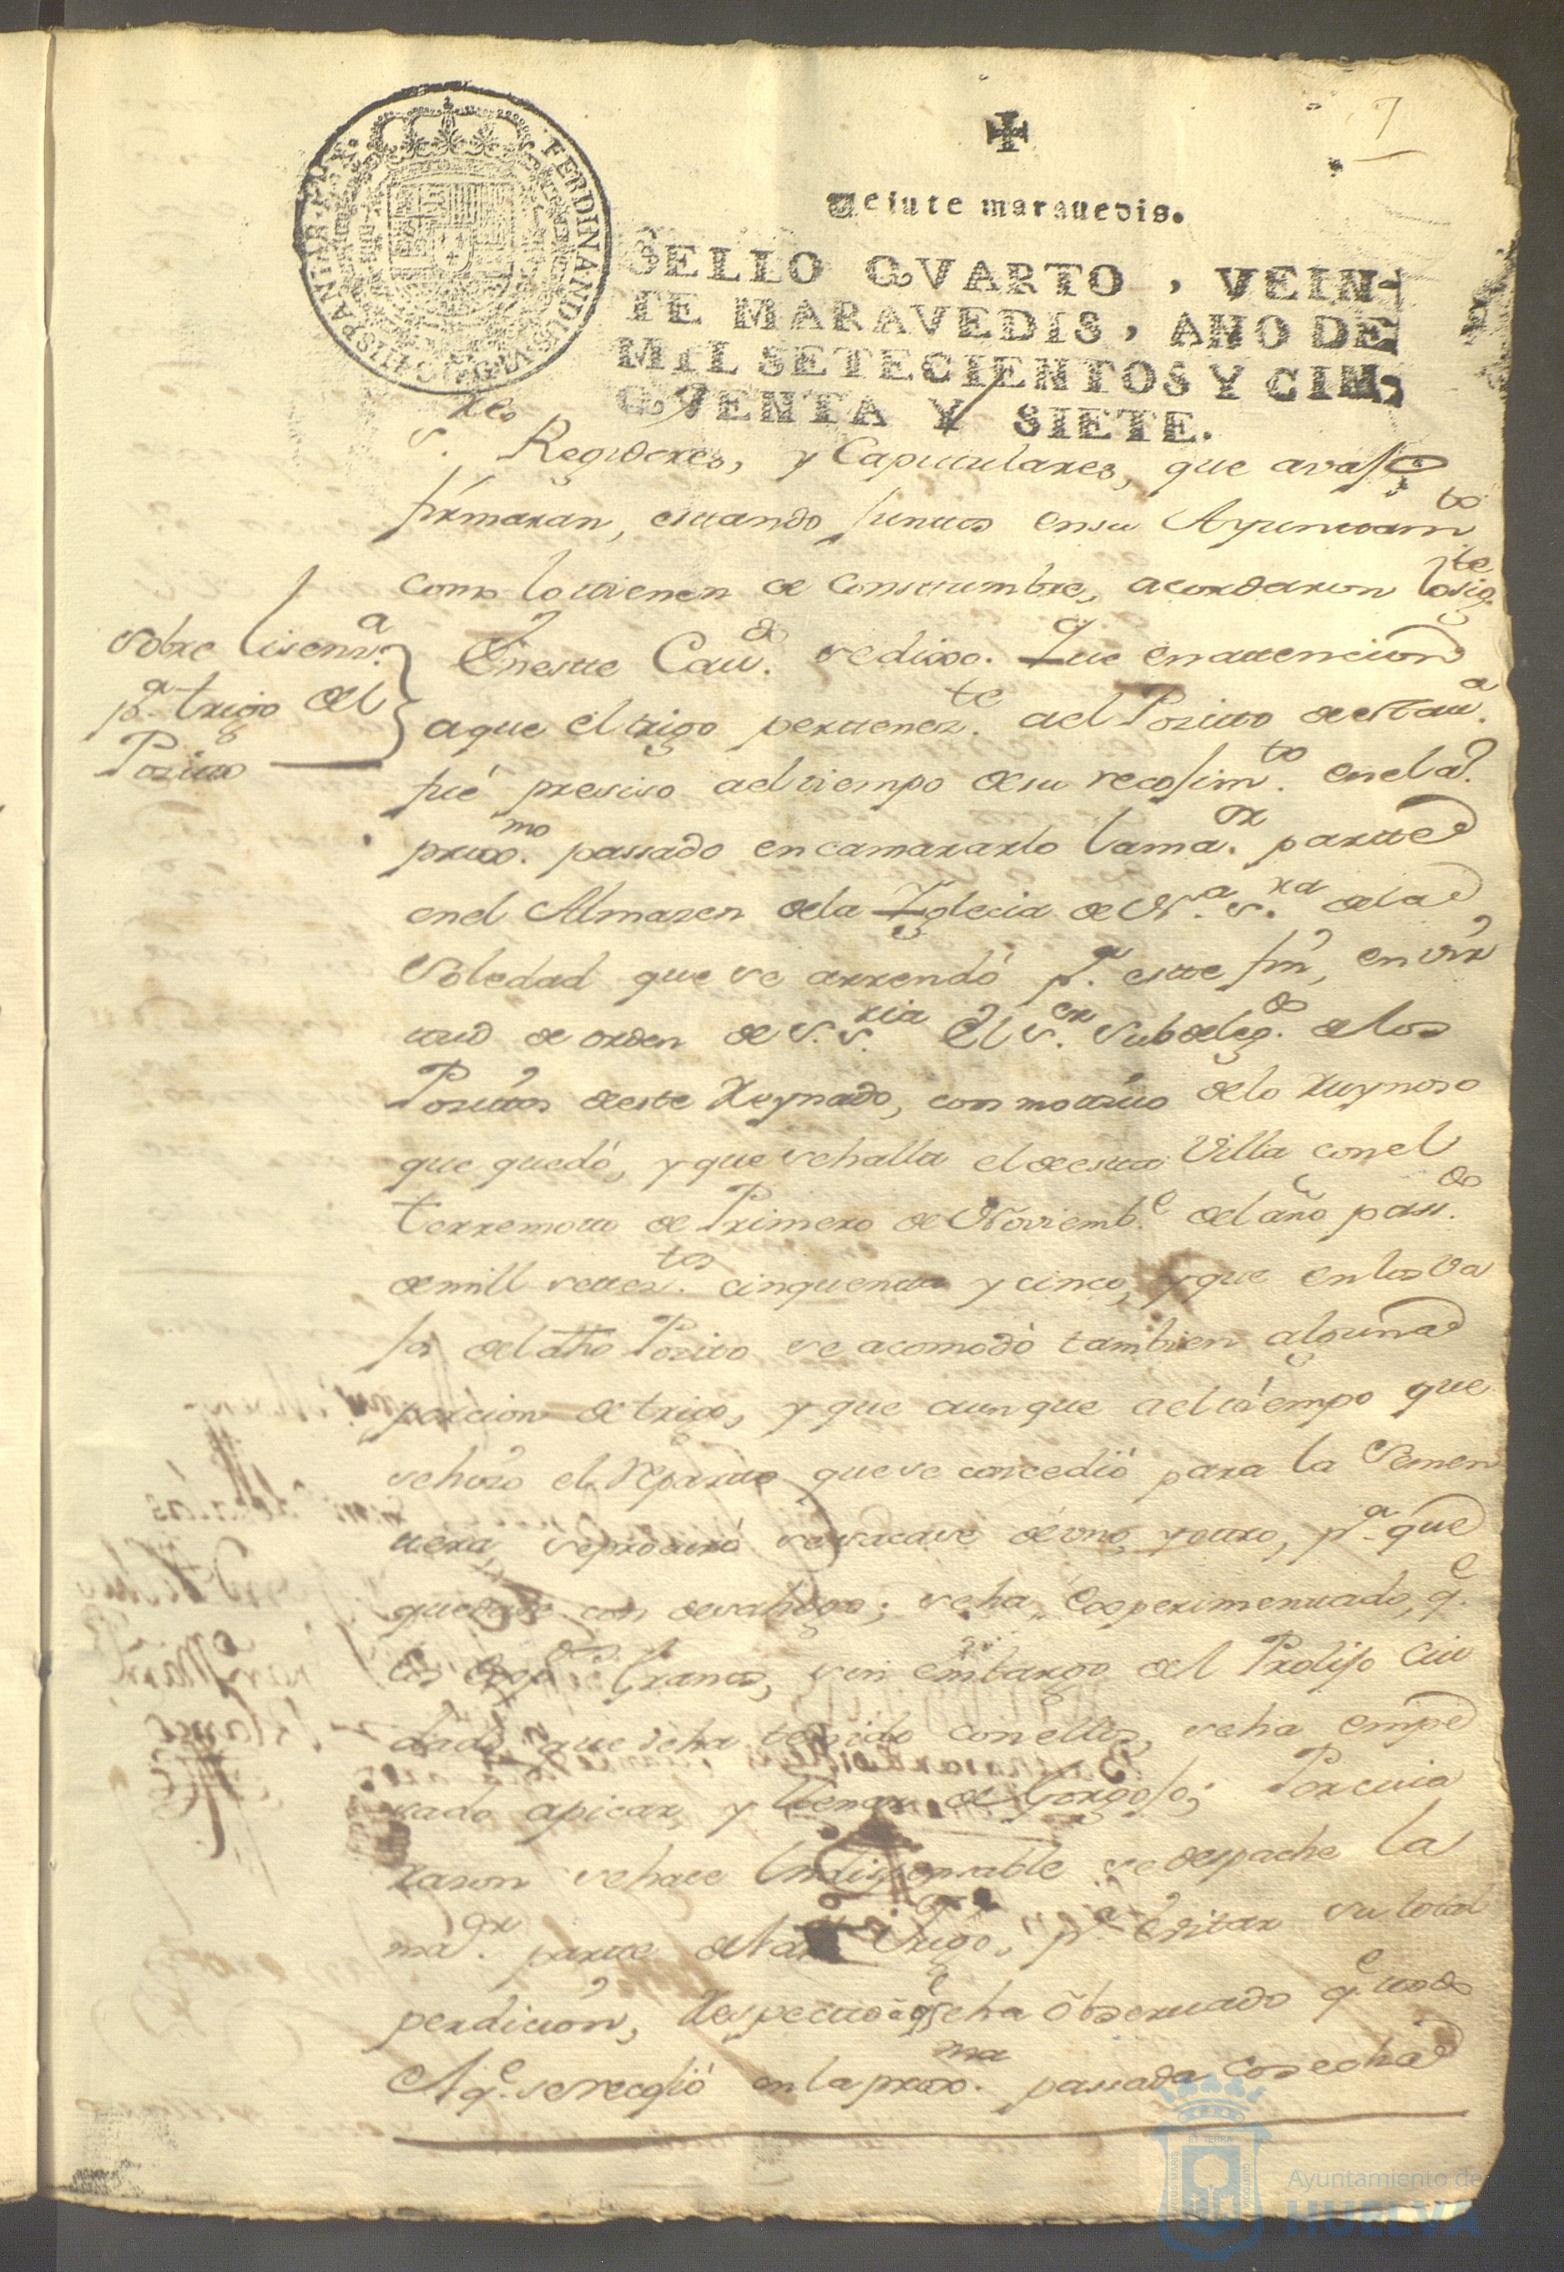 7
Veinte maravedis.
SELLO QVARTO, VEIN-
TE MARAVEDIS, AÑO DE
MIL SETECIENTOS Y CIN-
QVENTA Y SIETE.
FERDINANDUS VI D G HISPANIAR REX
res
s. Regidores, y Capitulares, que avajo
firmaran, esttando junttos en su Ayunttam.to
como lo ttienen de Consttumbre, acordaron lo sig.te
sobre lisenz.a
p.a trigo del
Pozitto
En estte Cau.do se dixo. Que en attencion
a que el trigo perttenez.te a el Pozitto de esta v.a
fué presiso a el tiempo de su recojim.to en el a.o
prox.mo passado encamararlo la ma.or partte
en el Almazen de la Yglecia de N.a S.ra de la
Soledad que se arrendó p.a estte fin, en vir
ttud de orden de S.S.ria el S.or Subdeleg.do de los
Pozittos de este Reynado, con mottivo de lo Ruynoso
que quedó, y que se halla el de estta Villa con el
terremotto de Primero de Noviemb.e del año pass.do
de mill settez.tos cinquentta y cinco, y que en las va
jas del dho Pozito se acomodó tambien alguna
porcion de trigo, y que aunque a el ttiempo que
se hizo el repartto que se concedió para la Semen
ttera, se procuró se sacase de uno, y ottro, p.a que
quedase con desahogo; se ha Experimenttado, q.e
los Granos, sin embargo del Prolijo Cui
dado que se ha tenido con ellos, se ha empe
zado a picar, y llenar de Gorgojo; Por cuia
razon se hace Indispensable se despache la
ma.or partte de Trigo, p.a Evitar su total
perdicion, Respectto a q.e se ha observado q.e ttodo
el q.e se recojió en la prox.ma passada Cosecha
Ayuntamiento de
HUELVA